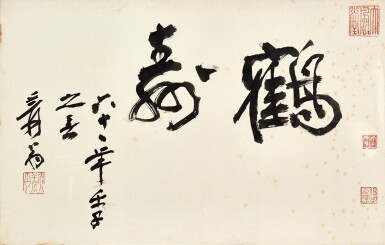 鶴壽
六十一年壬子
之春
爰翁